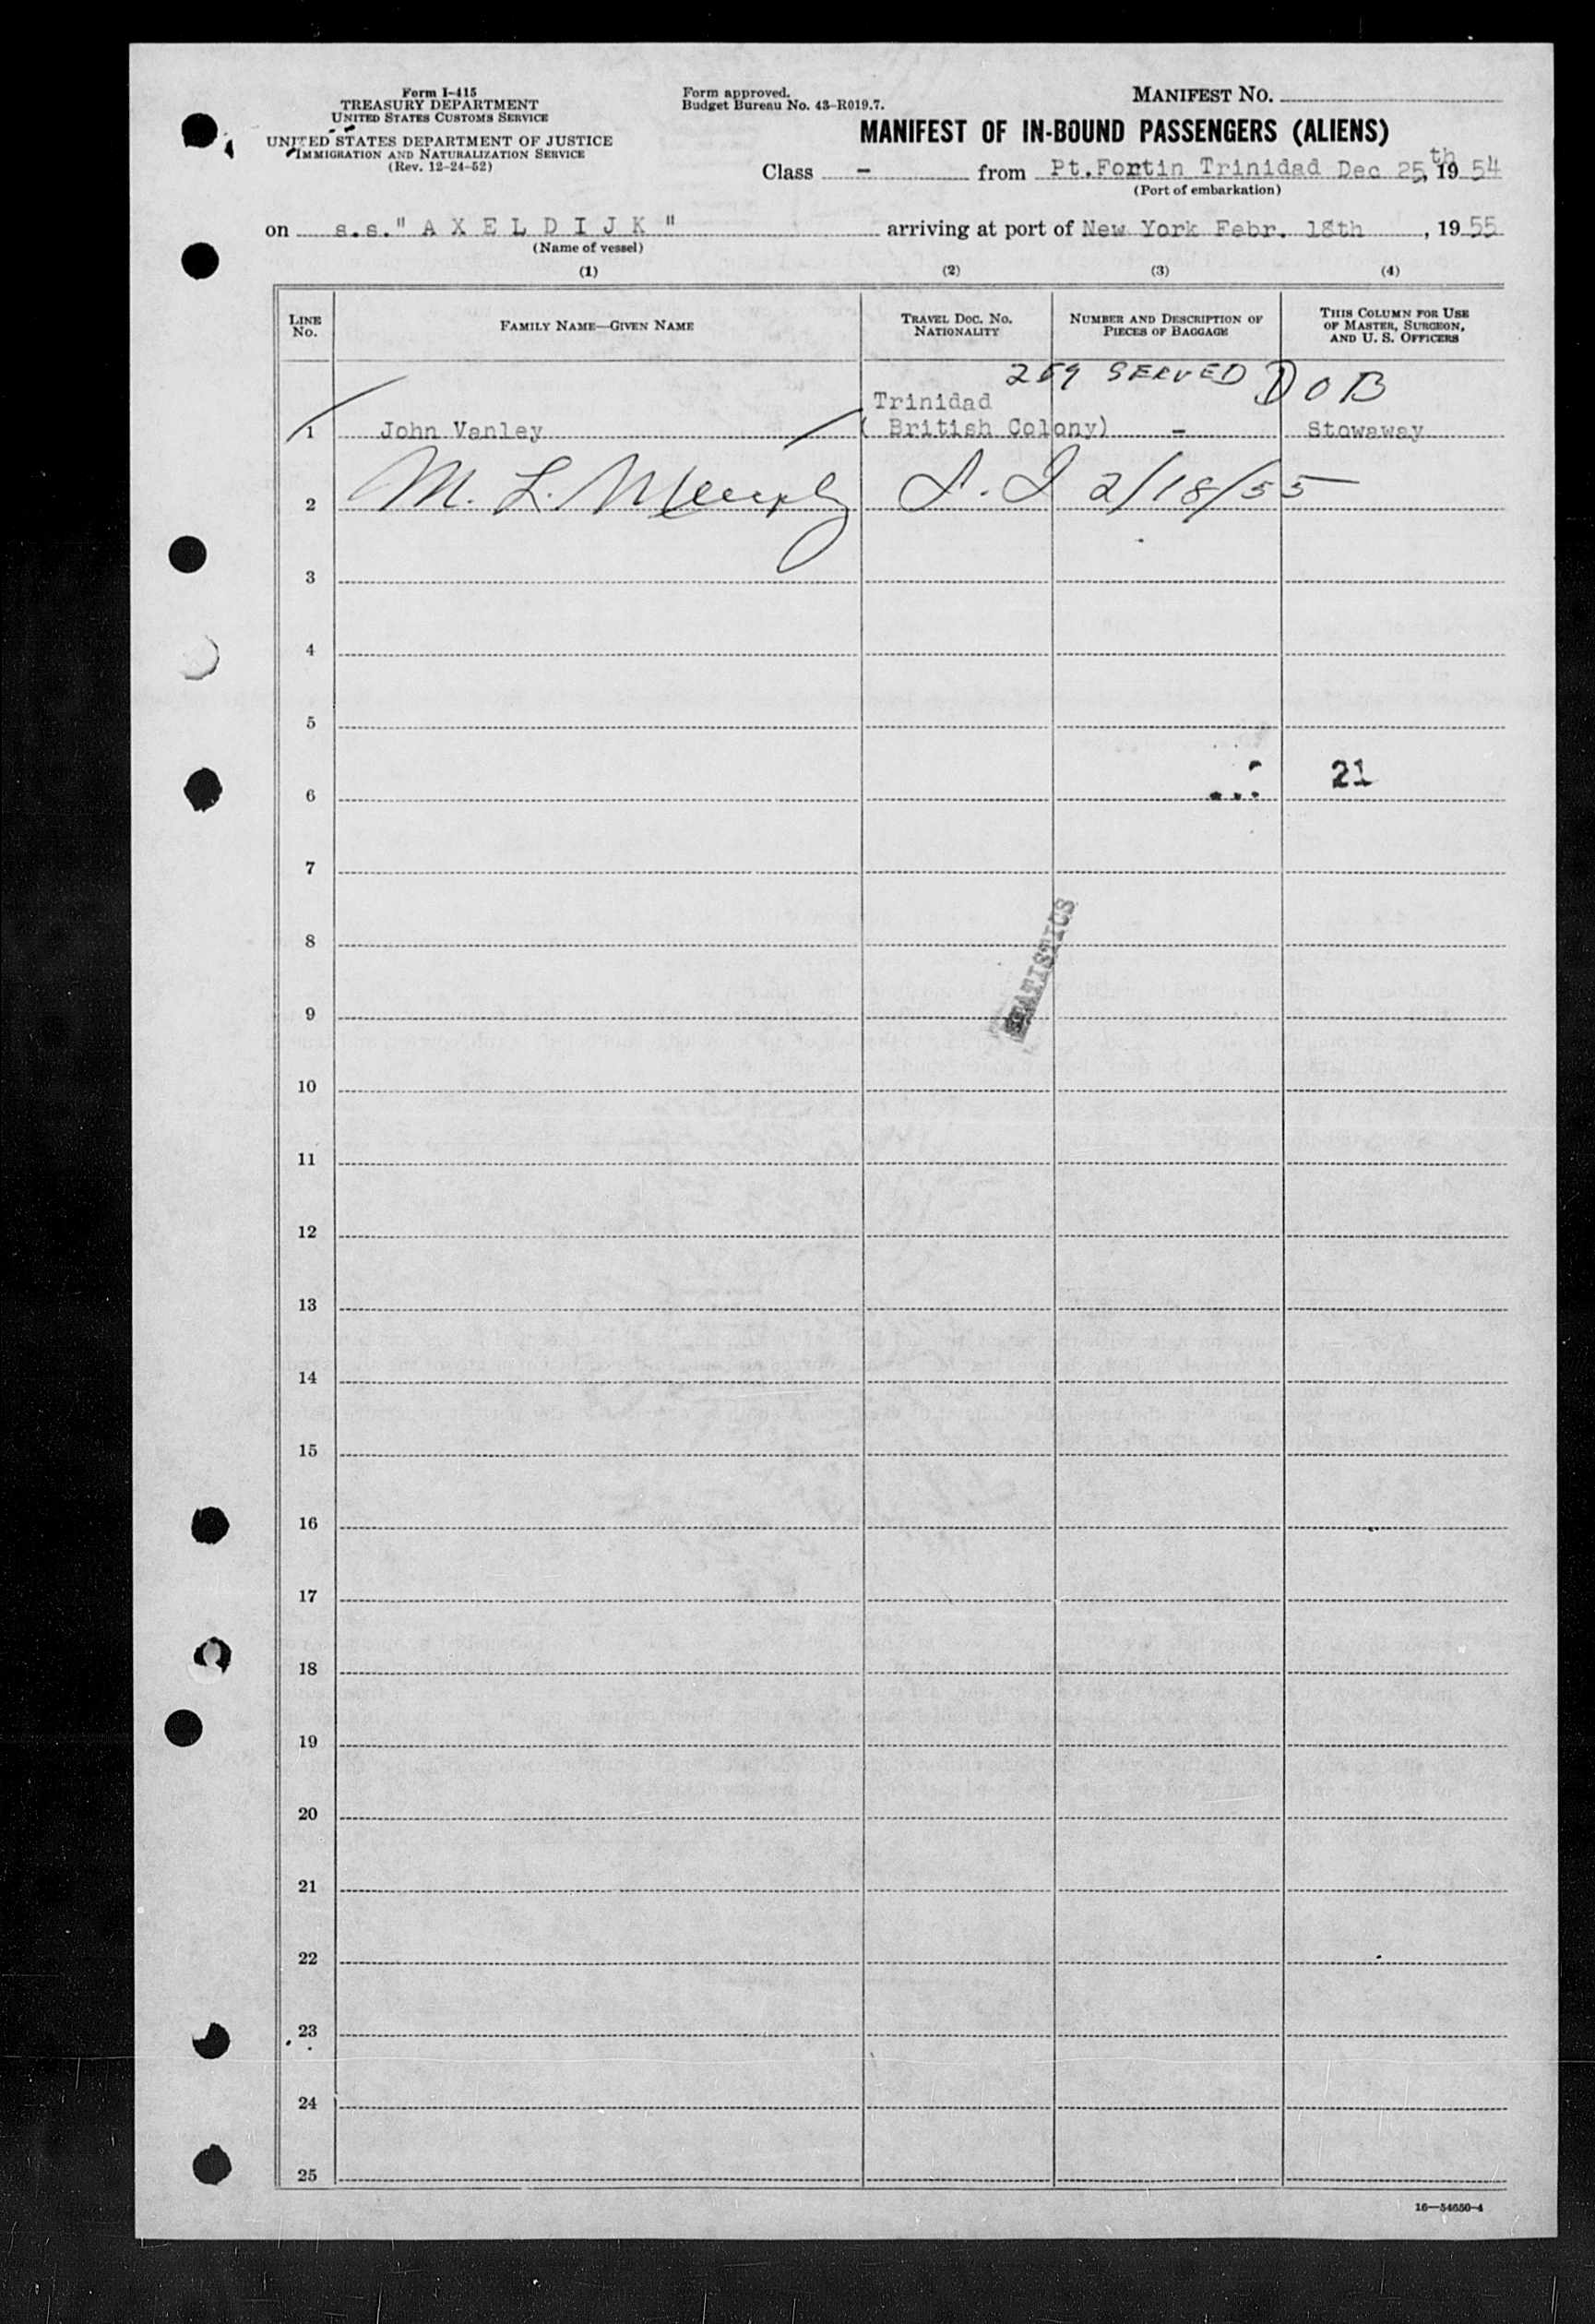 Form I-415
TREASURY DEPARTMENT
UNITED STATES CUSTOMS SERVICE
UNITED STATES DEPARTMENT OF JUSTICE
IMMIGRATION AND NATURALIZATION SERVICE
(Rev. 12-24-52)
Form approved.
Budget Bureau No. 43-R019.7.
MANIFEST NO.
MANIFEST OF IN-BOUND PASSENGERS (ALIENS)
Class - from Pt.Fortin Trinidad Dec 25th, 1954
(Port of embarkation)
on s.s." A X E L D I J K " arriving at port of New York Febr. 18th, 1955
(Name of vessel)
(1) (2) (3) (4)
LINE NO.
FAMILY NAME—GIVEN NAME
TRAVEL DOC. NO. NATIONALITY
NUMBER AND DESCRIPTION OF PIECES OF BAGGAGE
THIS COLUMN FOR USE OF MASTER, SURGEON, AND U. S. OFFICERS
259 SERVED DOB
Trinidad
1 John Vanley ( British Colony) - Stowaway
2 M. L. Murphy I. I 2/18/55
3
4
5
21
6
7
8
STATISTICS
9
10
11
12
13
14
15
16
17
18
19
20
21
22
23
24
25
16—54650-4